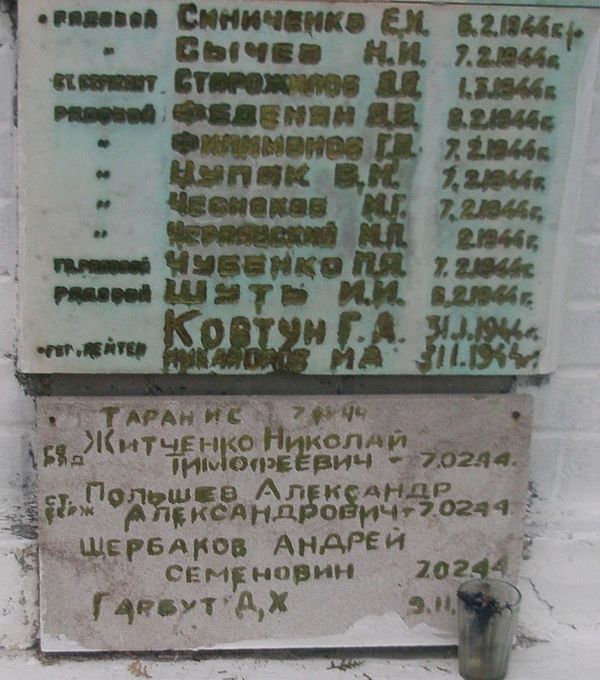 РЯДОВОЙ СИНИЧЕНКО Е.И. 6.2.1944г.
" СЫЧЕВ Н.И. 7.2.1944г.
СТ.СЕРЖАНТ СТАРОЖИЛОВ 1.3.1944г.
РЯДОВОЙ ФЕДЕНЯН 8.2.1944г.
" ФИЛИМОНОВ 7.2.1944г.
" ЧУПАК В.М. 7.2.1944г.
" ЧЕСНОКОВ М.Г. 7.2.1944г.
" ЧЕРНЯВСКИЙ М.П. 2.1944г.
ГВ.РЯДОВОЙ ЧУБЕНКО П.Я. 7.2.1944г.
РЯДОВОЙ ШУТЬ И.И. 6.2.1944г.
КОВТУН Г.А. 31.1.1944г.
ЛЕЙТЕН М А
ТАРАН И С
ЖИТЧЕНКО НИКОЛАЙ
РЯД ТИМОФЕЕВИЧ - 7.02.44.
СТ. ПОЛЫШЕВ АЛЕКСАНДР
СЕРЖ АЛЕКСАНДРОВИЧ - 7.02.44
ЩЕРБАКОВ АНДРЕЙ
СЕМЕНОВИН 7.02.44
ГАРБУТ Д,Х